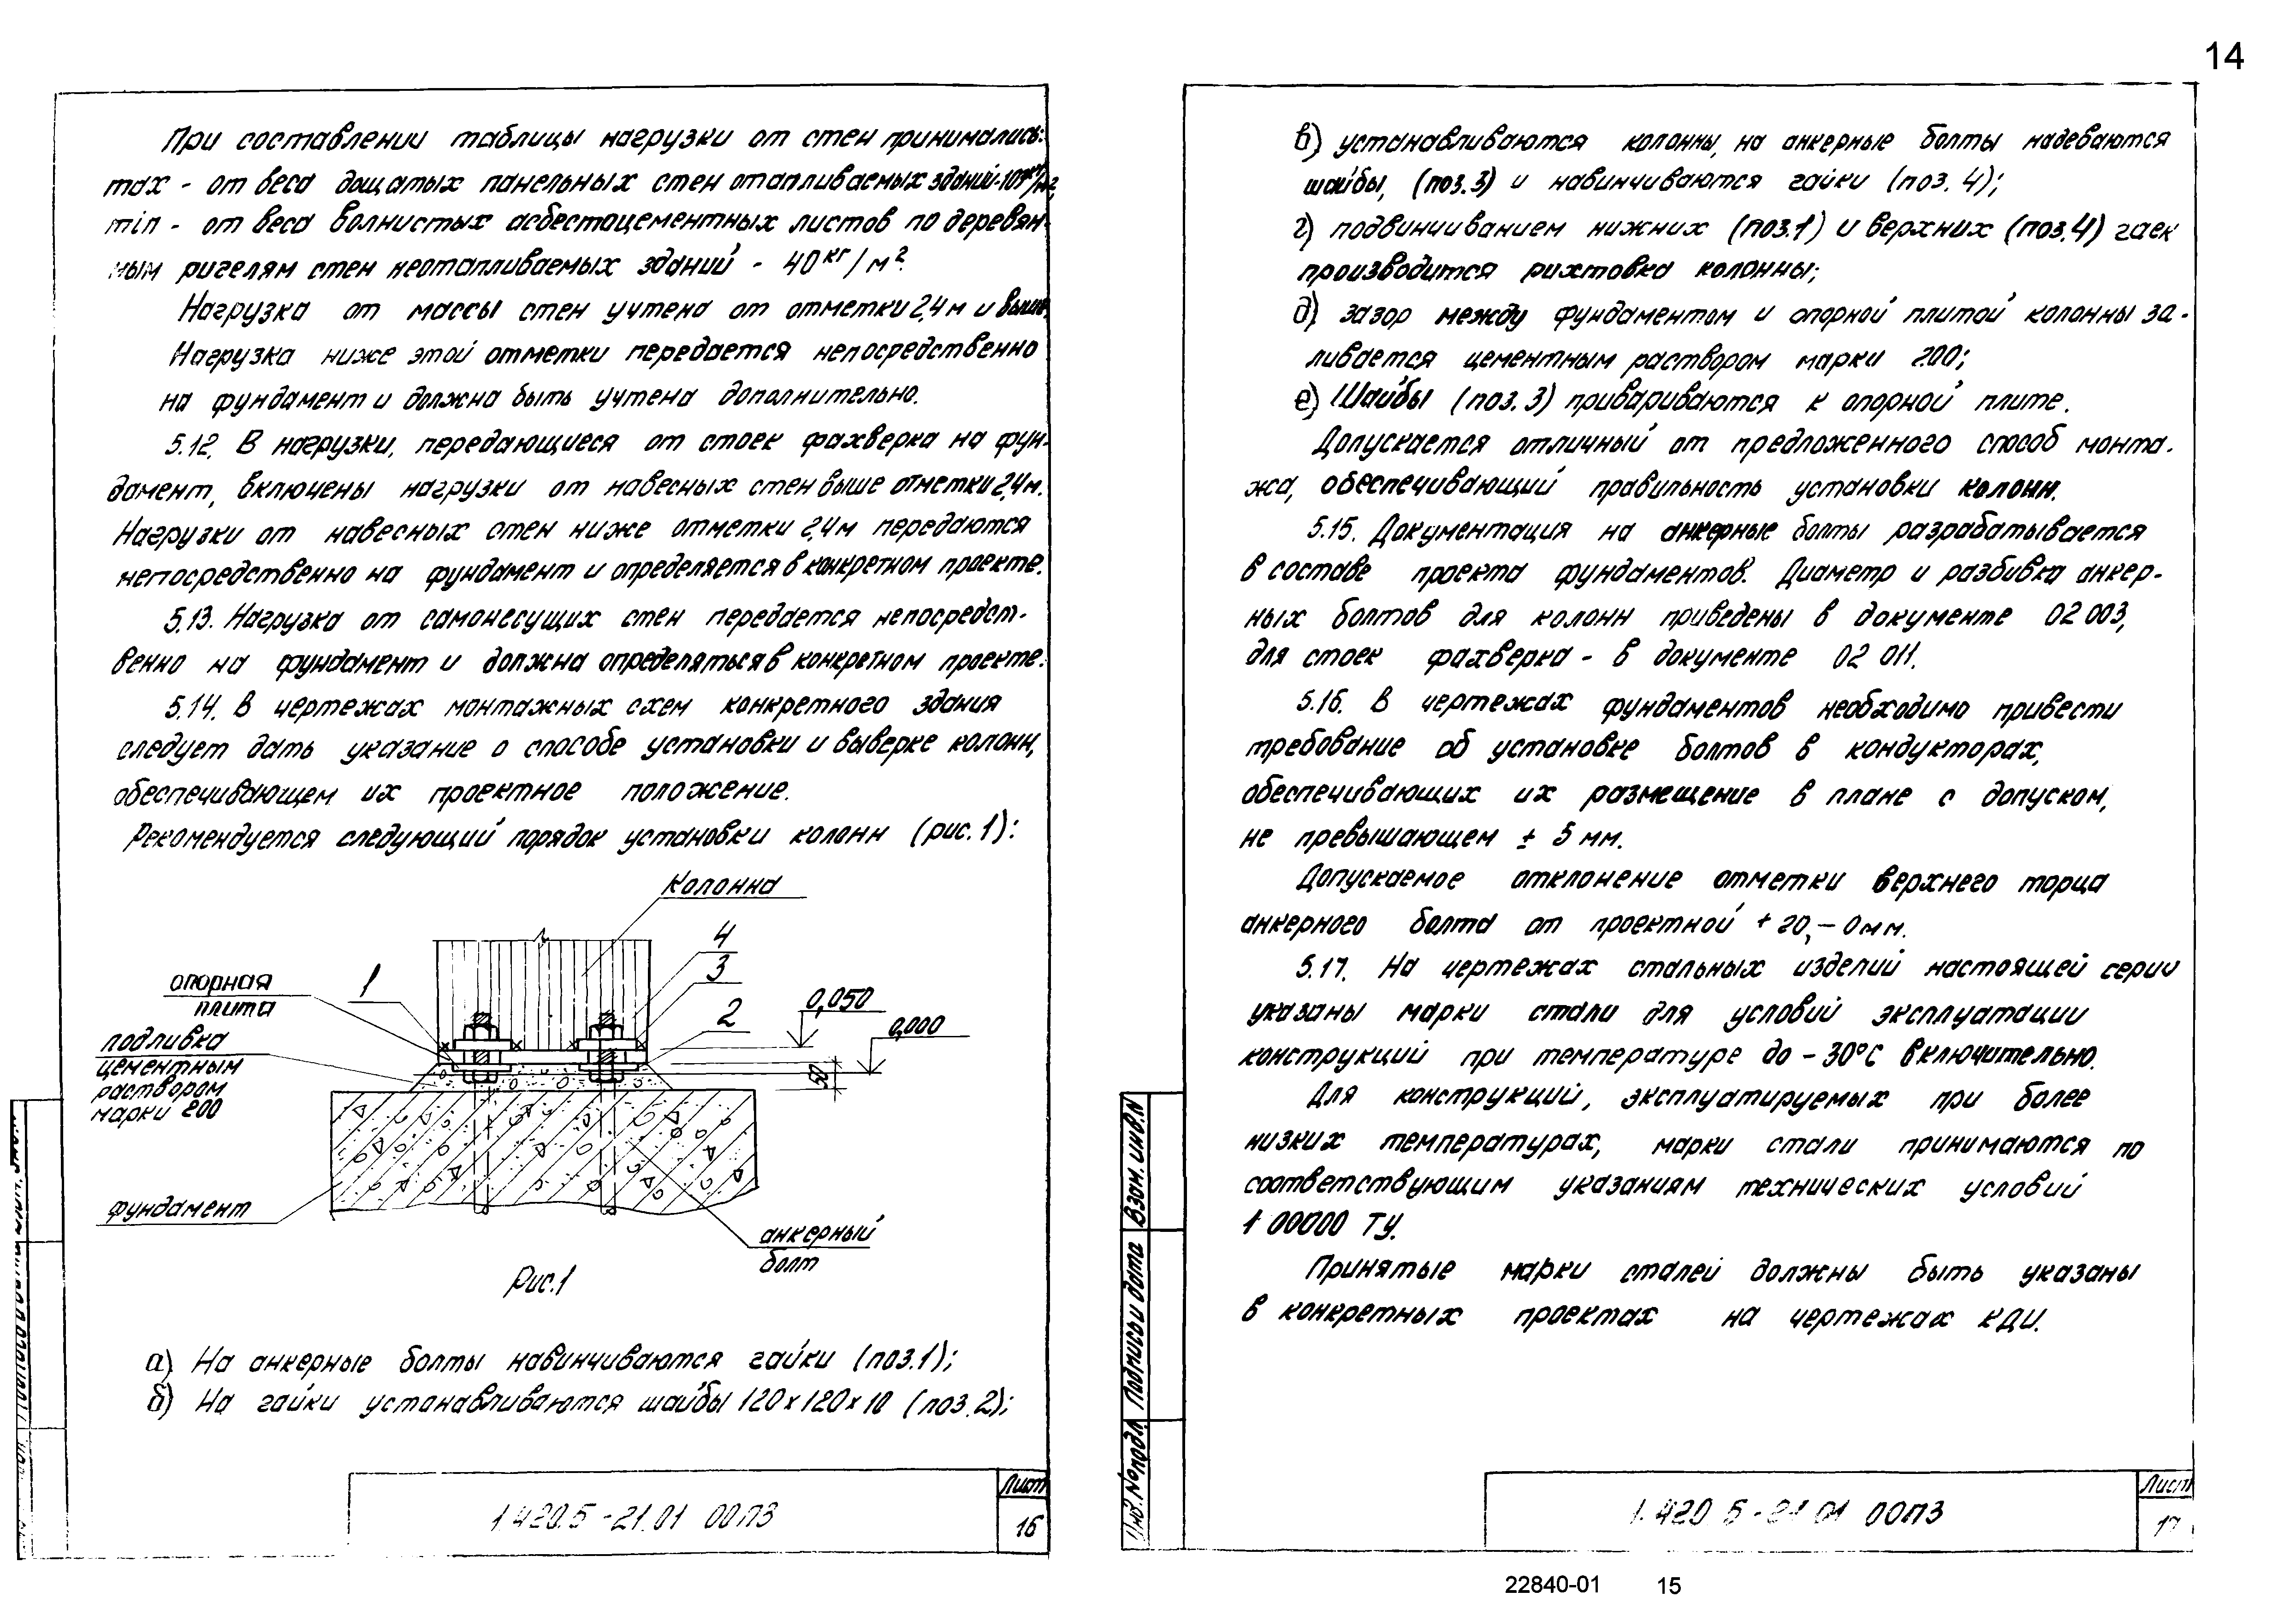 14
При составлении таблицы нагрузки от стен принимались:
max - от веса дощатых панельных стен отапливаемых зданий-107кг/м²,
min - от веса волнистых асбестоцементных листов по деревян-
ным ригелям стен неотапливаемых зданий - 40кг/м².
Нагрузка от массы стен учтена от отметки 2,4м и выше.
Нагрузка ниже этой отметки передается непосредственно
на фундамент и должна быть учтена дополнительно.
5.12. В нагрузки, передающиеся от стоек фахверка на фун-
дамент, включены нагрузки от навесных стен выше отметки 2,4м.
Нагрузки от навесных стен ниже отметки 2,4м передаются
непосредственно на фундамент и определяется в конкретном проекте.
5.13. Нагрузка от самонесущих стен передается непосредст-
венно на фундамент и должна определяться в конкретном проекте.
5.14. В чертежах монтажных схем конкретного здания
следует дать указание о способе установки и выверке колонн,
обеспечивающем их проектное положение.
Рекомендуется следующий порядок установки колонн (рис.1):
Колонна
4
3
2
1
опорная
плита
подливка
цементным
раствором
марки 200
0,050
0,000
50
фундамент
анкерный
болт
Рис.1
а) На анкерные болты навинчиваются гайки (поз.1);
б) На гайки устанавливаются шайбы 120х120х10 (поз.2);
1.420.5-21.01 00ПЗ
Лист
16
в) устанавливаются колонны, на анкерные болты надеваются
шайбы, (поз.3) и навинчиваются гайки (поз. 4);
г) подвинчиванием нижних (поз.1) и верхних (поз.4) гаек
производится рихтовка колонны;
д) зазор между фундаментом и опорной плитой колонны за-
ливается цементным раствором марки 200;
е) Шайбы (поз.3) привариваются к опорной плите.
Допускается отличный от предложенного способ монта-
жа, обеспечивающий правильность установки колонн.
5.15. Документация на анкерные болты разрабатывается
в составе проекта фундаментов. Диаметр и разбивка анкер-
ных болтов для колонн приведены в документе 02 003,
для стоек фахверка - в документе 02 011.
5.16. В чертежах фундаментов необходимо привести
требование об установке болтов в кондукторах,
обеспечивающих их размещение в плане с допуском,
не превышающем ± 5 мм.
Допускаемое отклонение отметки верхнего торца
анкерного болта от проектной + 20, - 0мм.
5.17. На чертежах стальных изделий настоящей серии
указаны марки стали для условий эксплуатации
конструкций при температуре до - 30°С включительно.
Для конструкций, эксплуатируемых при более
низких температурах, марки стали принимаются по
соответствующим указаниям технических условий
1 00000 ТУ.
Принятые марки сталей должны быть указаны
в конкретных проектах на чертежах КДИ.
Инв.№подл. Подпись и дата Взам. инв.N
1.420.5-21.01 00ПЗ
Лист
17
22840-01 15